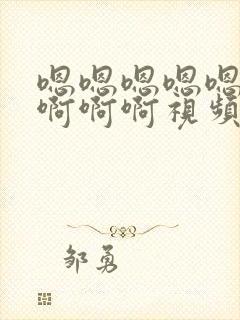 嗯嗯嗯嗯嗯
啊啊啊视頻
邹勇